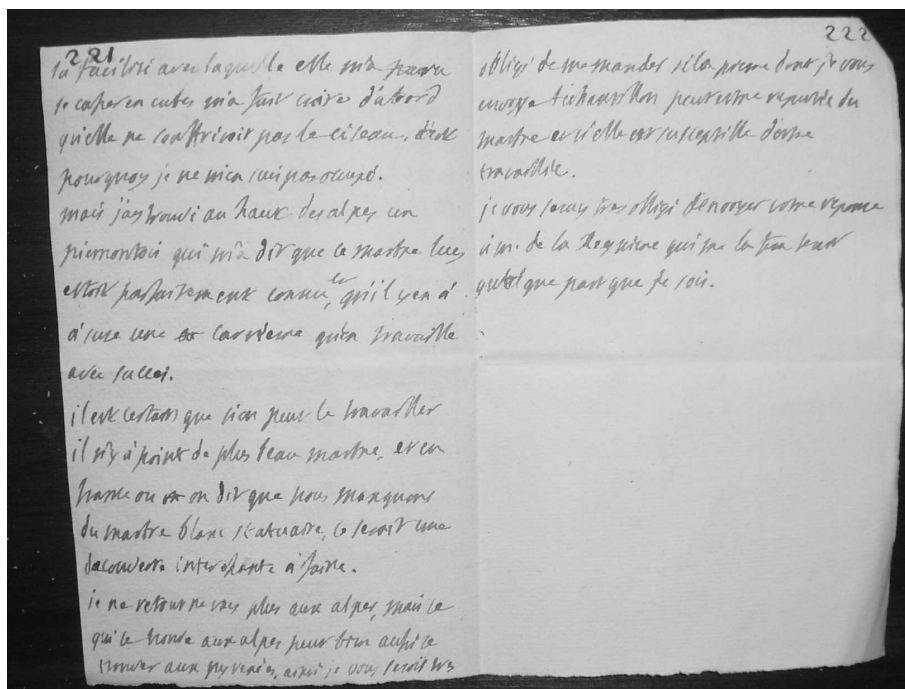 221
la facilité avec laquelle elle m'a paru
se casser en cubes m'a fait croire d'abord
qu'elle ne souffriroit pas le ciseau, c'est
pourquoy je ne m'en suis pas occupé.
mais j'ay trouvé au haut des alpes un
piemontois qui m'a dit que ce marbre
etoit parfaitement connu la, qu'il y en a
a suze une carriere qu'on travaille
avec succes.
il est certain que si on peut le travailler
il n'y a point de plus beau marbre, et en
france ou on dit que nous manquons
du marbre blanc statuaire, ce seroit une
decouverte interessante a faire.
je ne retourneray plus aux alpes, mais ce
qui se trouve aux alpes peut bien aussi se
trouver aux pyrenées, ainsi je vous serois tres
222
obligé de me mander si la pierre dont je vous
envoye l'echantillon peut estre reputée du
marbre et si elle est susceptible d'estre
travaillée.
je vous seray tres obligé d'envoyer votre reponse
a mr. de la Reyniere qui me la fera tenir
quelque part que je sois.